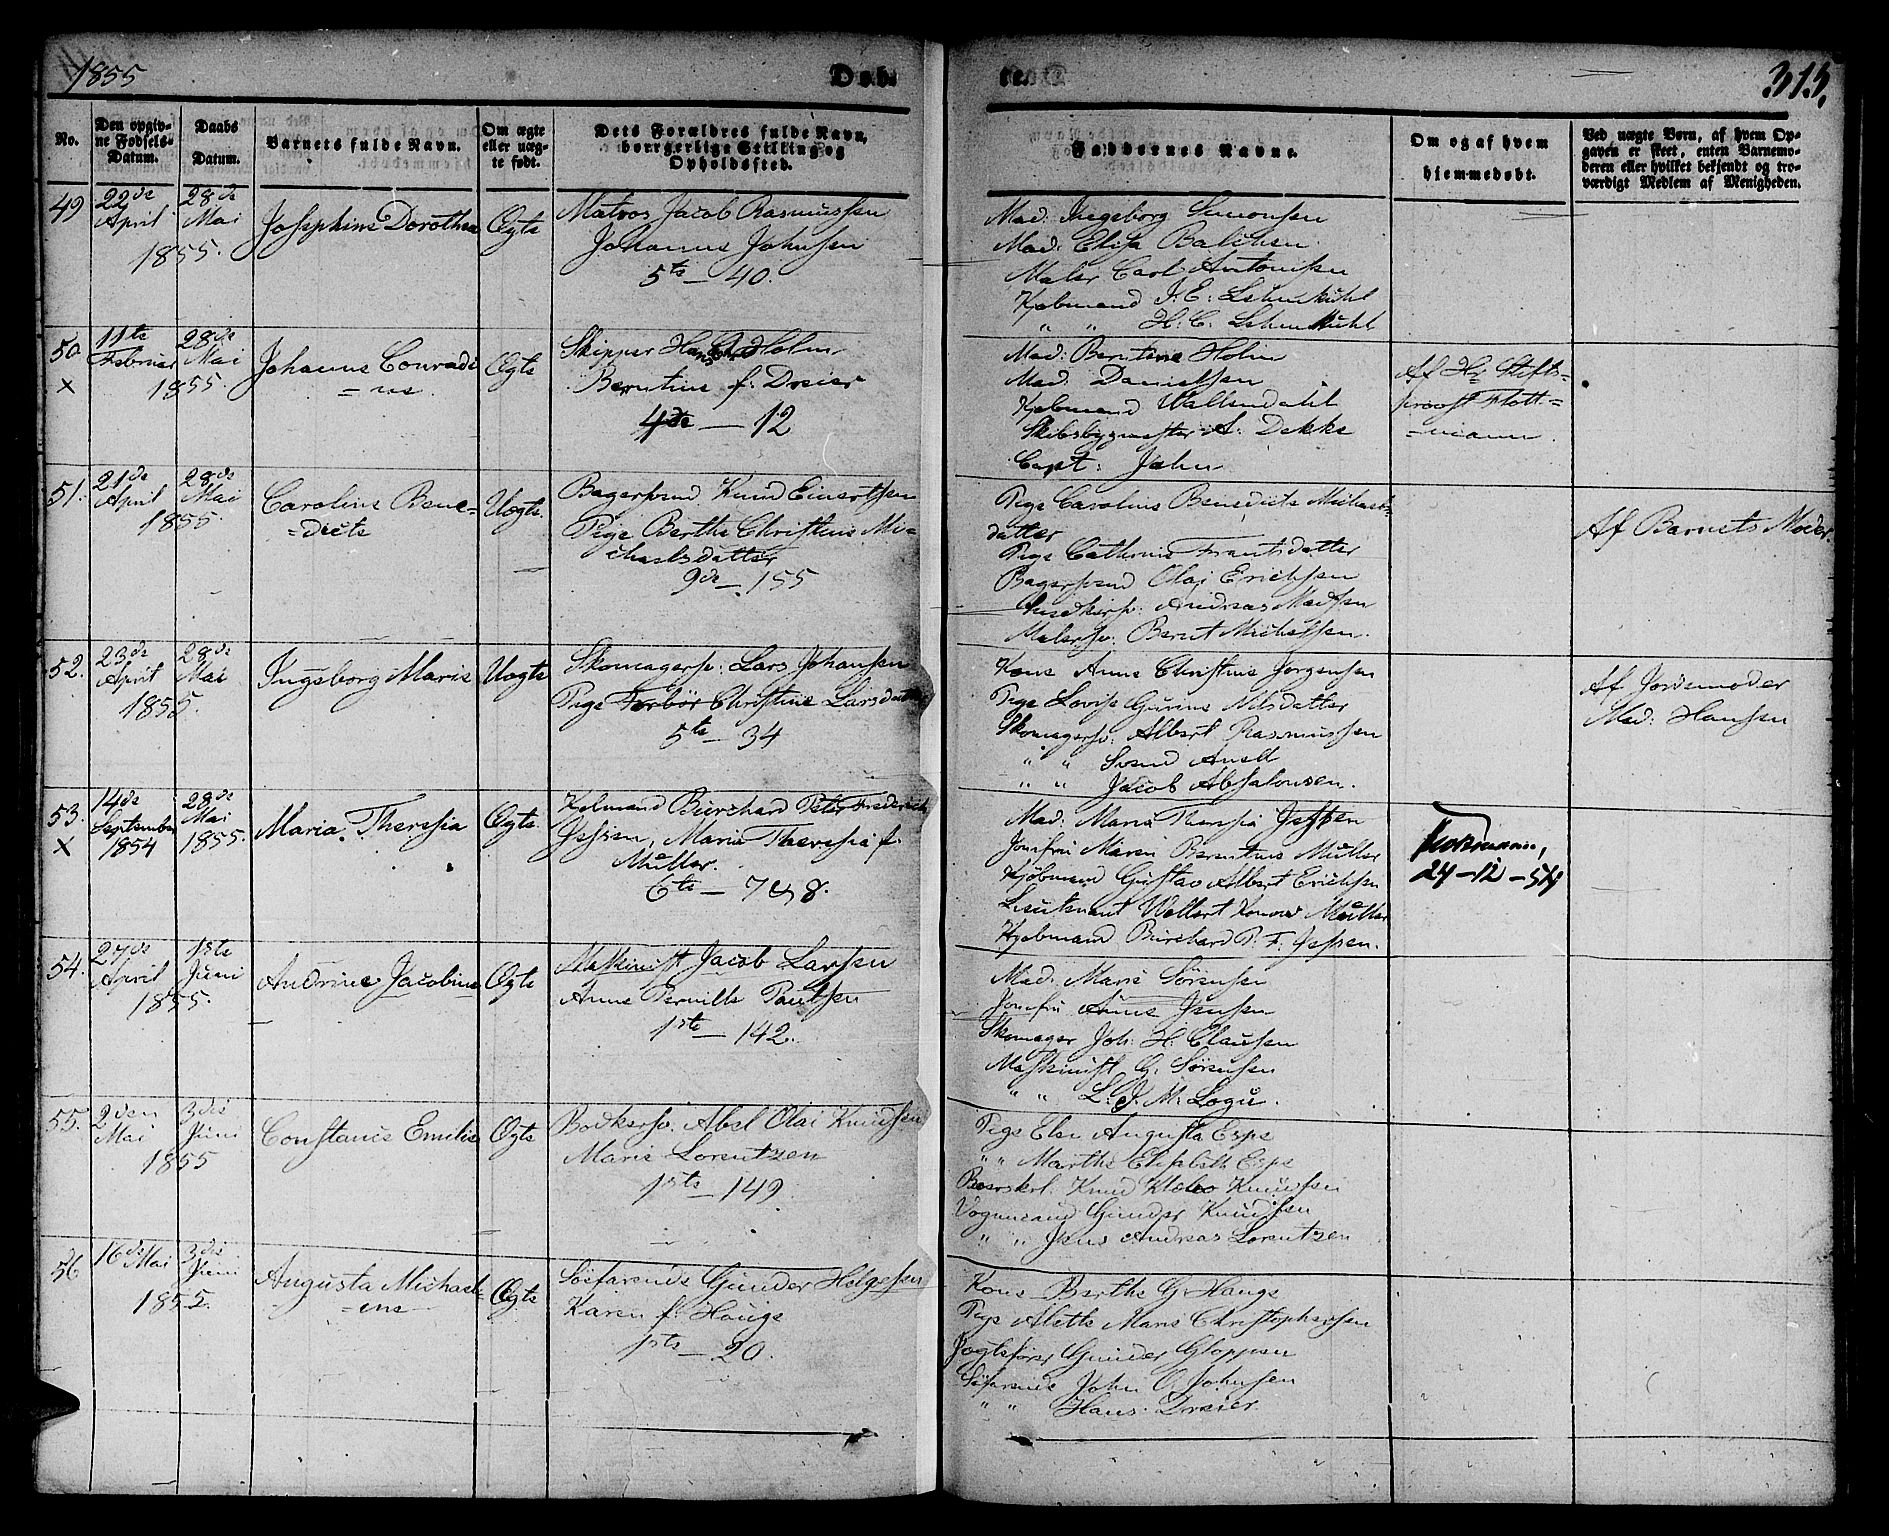 1855
Døb-
te.
315.
No.
Den opgiv-
ne Fødsels-
Datum.
Daabs
Datum.
Barnets fulde Navn.
Om ægte
eller uæg-
te født.
Dets Forældres fulde Navn,
borgerlige Stilling og
Opholdssted.
Faddernes Navne.
Om og af hvem
hjemmedøbt.
Ved uægte Børn, af hvem Op-
gaven er skeet, enten Barnemo-
deren eller hvilket bekjendt og tro-
værdigt Medlem af Menigheden.
49
22de
April
28de
Mai
1855.
Josephine Dorothea
Ægte
Matros Jacob Rasmussen
Johanne Johnsen
5te – 40.
Mad: Ingeborg Simonsen
Mad: Elisa Balchen.
Maler Carl Antonisen
Kjøbmand J. E: Lehmkuhl
" " H: C: Lehmkuhl
50
x
11te
Februar
28de
Mai
1855.
Johanne Conradi
= ne
Ægte
Skipper Holm
Berntine f: Dreier
4de – 12
Mad: Berntine Holm
Mad: Danielsen
Kjøbmand Wallendahl
Skibsbygmester A: Dekke
Capt: Jahn
Af Hr Stifts=
provst Flott=
=mann.
51.
21de
April
28de
Mai
1855.
Caroline Bene=
=dicte
Uægte.
Bagersvend Knud Einertsen
Pige Berthe Christine Mi=
chaelsdatter
9de – 155
Pige Caroline Benedicte Michaels=
datter
Pige Cathrine Frantsdatter
Bagersvend Olai Erichsen
Andreas Madsen
Malersv: Bernt Michelsen.
Af Barnets Moder.
52.
23de
April
28de
Mai
1855.
Ingeborg Marie
Uægte
Skomagersv: Lars Johansen
Pige Torbör Christine Larsdatter
5te – 34
Kone Anne Christine Jörgensen
Pige Lovise Gurine Nilsdatter
Skomagersv: Albert Rasmussen
" " Svend
" " Jacob Absalonsen.
Af Jordemoder
Mad: Hansen
53.
x
14de
September
1854
28de
Mai
1855.
Maria Theresia
Ægte.
Kjøbmand Burchard Peter Frederich
Jessen, Maria Theresia f.
Müller.
6te – 7 & 8.
Mad: Maria Theresia Jessen
Jomfru Maren Berentine Müller
Kjöbmand Gustav Albert Erichsen
Lieutenant Wollert Konow Müller
Kjøbmand Burchard P. F. Jessen.
24 – 12 – 54
54.
27de
April
1ste
Juni
1855.
Andrine Jacobine
Ægte
Maskinist Jacob Larsen
Anne Pernille Paulsen
1ste – 142.
Mad: Marie Sörensen
Jomfru Anne Jensen
Skomager Joh: H. Clausen
Maskinist G. Sörensen
" " L. J. M. Logu.
55.
2den
Mai
3die
Juni
1855
Constance Emilie
Ægte
Bødkersv. Abel Olai Knudsen
Marie Lorentzen
1ste – 149
Pige Else Augusta Espe
" " Marthe Elisabeth Espe
Knud Knudsen
Vognmand Gunder Knudsen
" " Jens Andreas Lorentzen
56
16de Mai
3die
Juni
1855.
Augusta Michael=
=ine
Ægte
Söefarende Gunder Helgesen
Karen f: Hauge
1ste – 20.
Kone Berthe G. Hauge
Pige Alette Marie Christophersen
Jagtefører Gunder Gloppen
Söfarende John O. Johnsen
" " Hans Dreier.